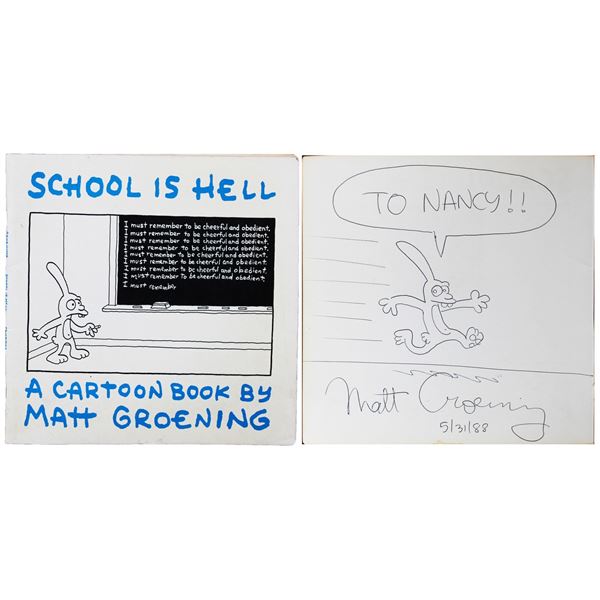 SCHOOL IS HELL
I must remember to be cheerful and obedient.
I must remember to be cheerful and obedient.
I must remember to be cheerful and obedient.
I must remember to be cheerful and obedient.
I must remember to be cheerful and obedient.
I must remember to be cheerful and obedient.
I must remember to be cheerful and obedient.
I must remember To be cheerful and obedient.
I must remember
A CARTOON BOOK BY
MATT GROENING
TO NANCY!!
Matt Groening
5/31/88